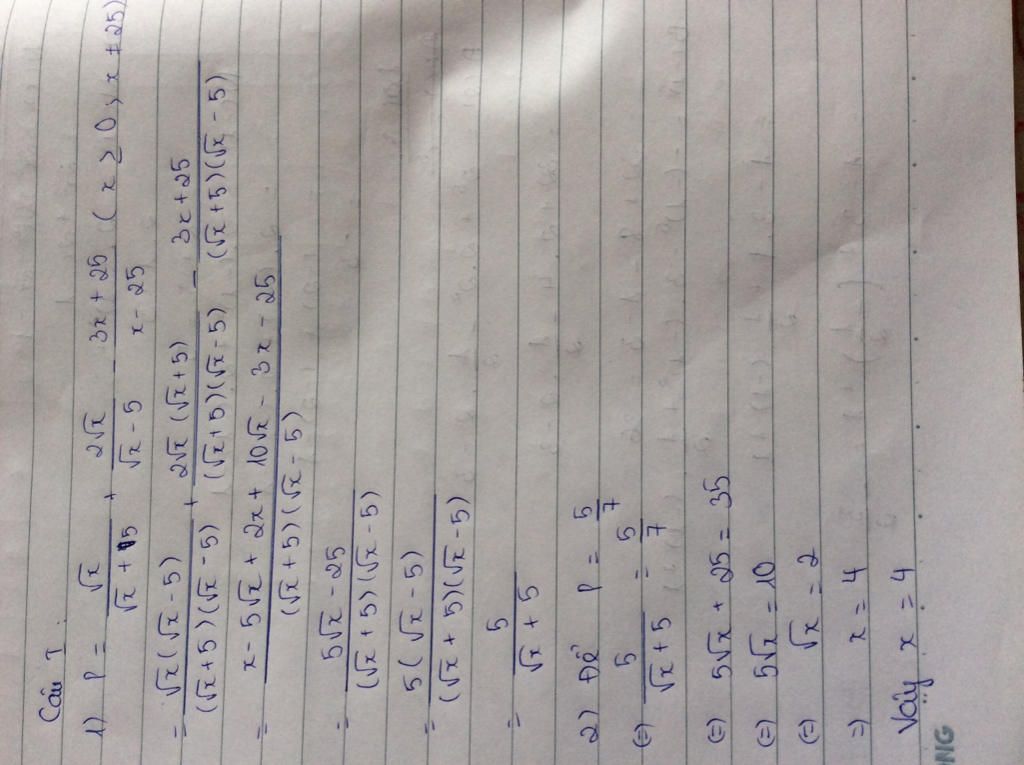 Câu I.
1) P = \frac{√x}{√x + 5} + \frac{2√x}{√x - 5} - \frac{3x + 25}{x - 25} (x ≥ 0, x ≠ 25)
= \frac{√x(√x - 5)}{(√x + 5)(√x - 5)} + \frac{2√x(√x + 5)}{(√x + 5)(√x - 5)} - \frac{3x + 25}{(√x + 5)(√x - 5)}
= \frac{x - 5√x + 2x + 10√x - 3x - 25}{(√x + 5)(√x - 5)}
= \frac{5√x - 25}{(√x + 5)(√x - 5)}
= \frac{5(√x - 5)}{(√x + 5)(√x - 5)}
= \frac{5}{√x + 5}
2) Để P = \frac{5}{7}
(=) \frac{5}{√x + 5} = \frac{5}{7}
(=) 5√x + 25 = 35
(=) 5√x = 10
(=) √x = 2
=) x = 4
Vậy x = 4
NG